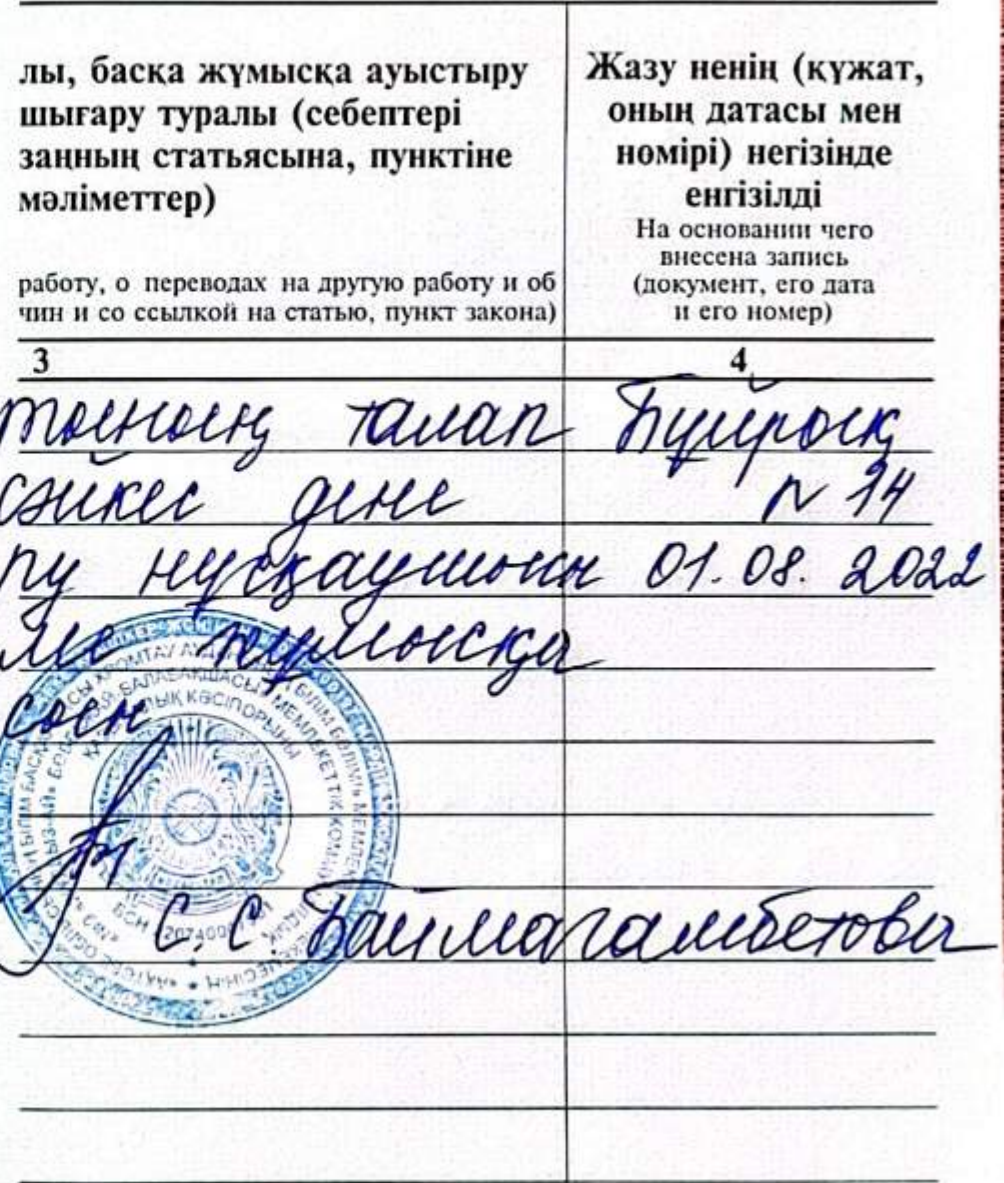 лы, басқа жұмысқа ауыстыру
шығару туралы (себептері
заңның статьясына, пунктіне
мәліметтер)
работу, о переводах на другую работу и об
чин и со ссылкой на статью, пункт закона)
Жазу ненің (құжат,
оның датасы мен
номірі) негізінде
енгізілді
На основании чего
внесена запись
(документ, его дата
и его номер)
3
4
тының талап Бұйрық
сәйкес дене N 14
ру нұсқаушысы 01.08.2022
жұмысқа
С. С. Баймагамбетова
БАЛАБАҚШАСЫ» МЕМЛЕКЕТТІК КОММУНАЛДЫҚ
ҚАЗЫНАЛЫҚ КӘСІПОРЫНЫ
БСН